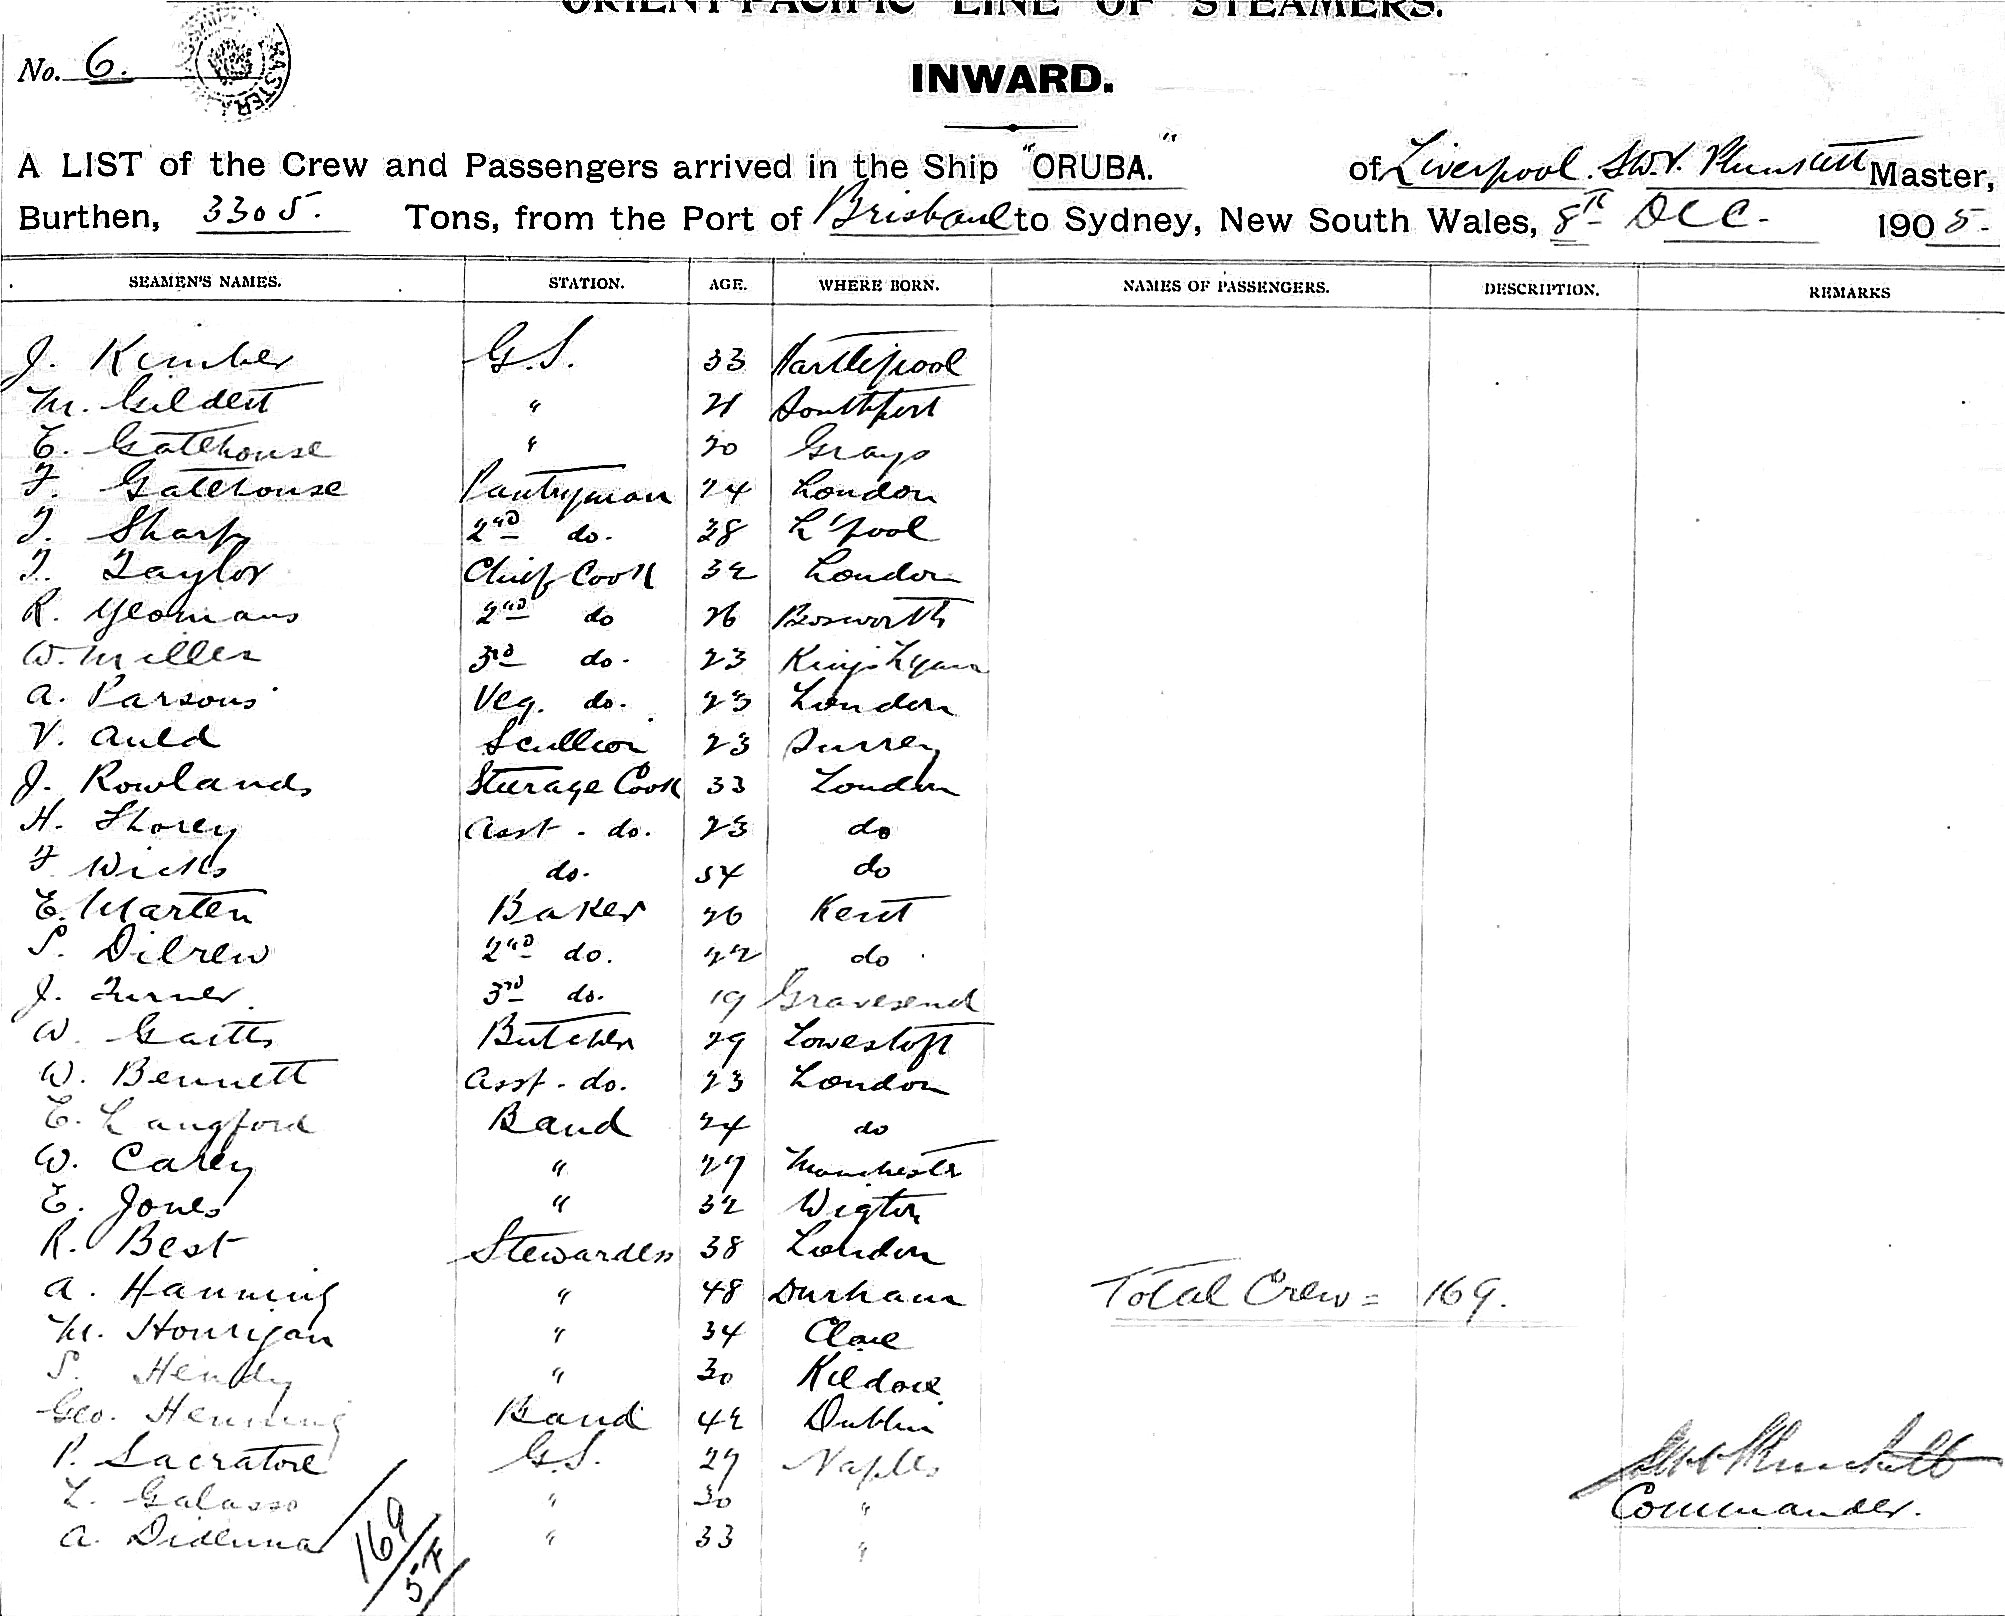 ORIENT-PACIFIC LINE OF STEAMERS.
No. 6.
MASTER.
INWARD.
A LIST of the Crew and Passengers arrived in the Ship "ORUBA." of Liverpool. Plunkett Master,
Burthen, 3305. Tons, from the Port of Brisbane to Sydney, New South Wales, 8th Dec. 1905.
SEAMEN'S NAMES. STATION. AGE. WHERE BORN. NAMES OF PASSENGERS. DESCRIPTION. REMARKS
J. Kimber G.S. 33 Hartlepool
M. Gildert " 21 Southport
E. Gatehouse " 20 Grays
F. Gatehouse Pantryman 24 London
T. Sharp 2nd do. 28 L'pool
T. Taylor Chief Cook 32 London
R. Yeomans 2nd do 26 Bosworth
W. Miller 3rd do. 23 Kings Lynn
A. Parsons Veg. do. 23 London
V. Auld Scullion 23 Surrey
J. Rowlands Steerage Cook 33 London
H. Shorey Asst. do. 23 do
F. Wicks do. 54 do
E. Marten Baker 26 Kent
S. Dilrew 2nd do. 22 do
J. Turner. 3rd do. 19 Gravesend
W. Butcher 29 Lowestoft
W. Bennett Asst. do. 23 London
E. Langford Band 24 do
W. Carey " 27 Manchester
E. Jones " 32 Wigton
R. Best Stewardess 38 London
A. Hanning " 48 Durham Total Crew = 169.
M. Hourigan " 34 Clare
S. Hendy " 30 Kildare
Geo. Henning Band 42 Dublin
P. Sacratore G.S. 27 Naples
L. Galasso " 30 "
Commander.
A. " 33 "
169